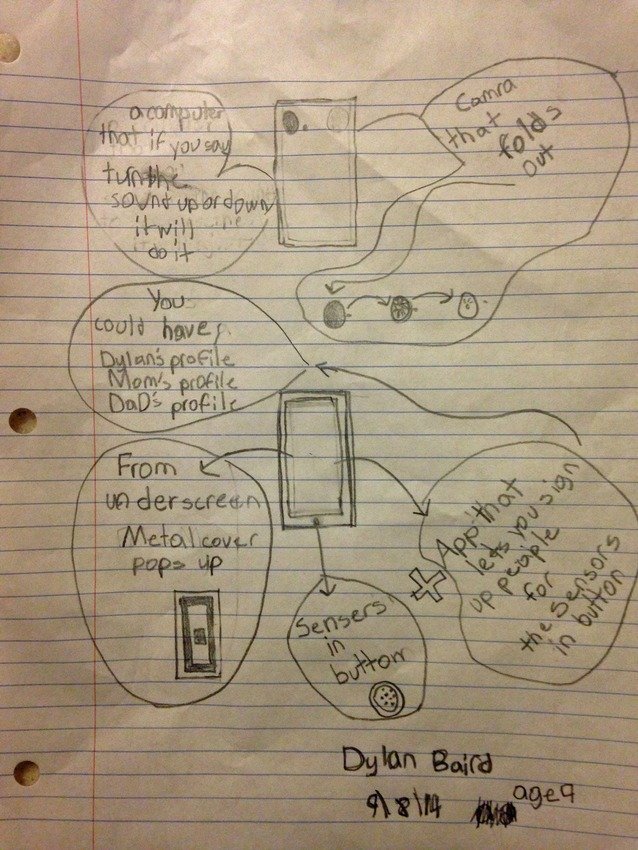 a computer
that if you say
turn the
sound up or down
it will
do it
Camra
that
folds
out
You
could have
Dylan's profile
Mom's profile
DaD's profile
From
under screen
Metal cover
pops up
Sensers
in
button
App that
lets you sign
up people
for
the sensors
in button
Dylan Baird
9/8/14
age 9